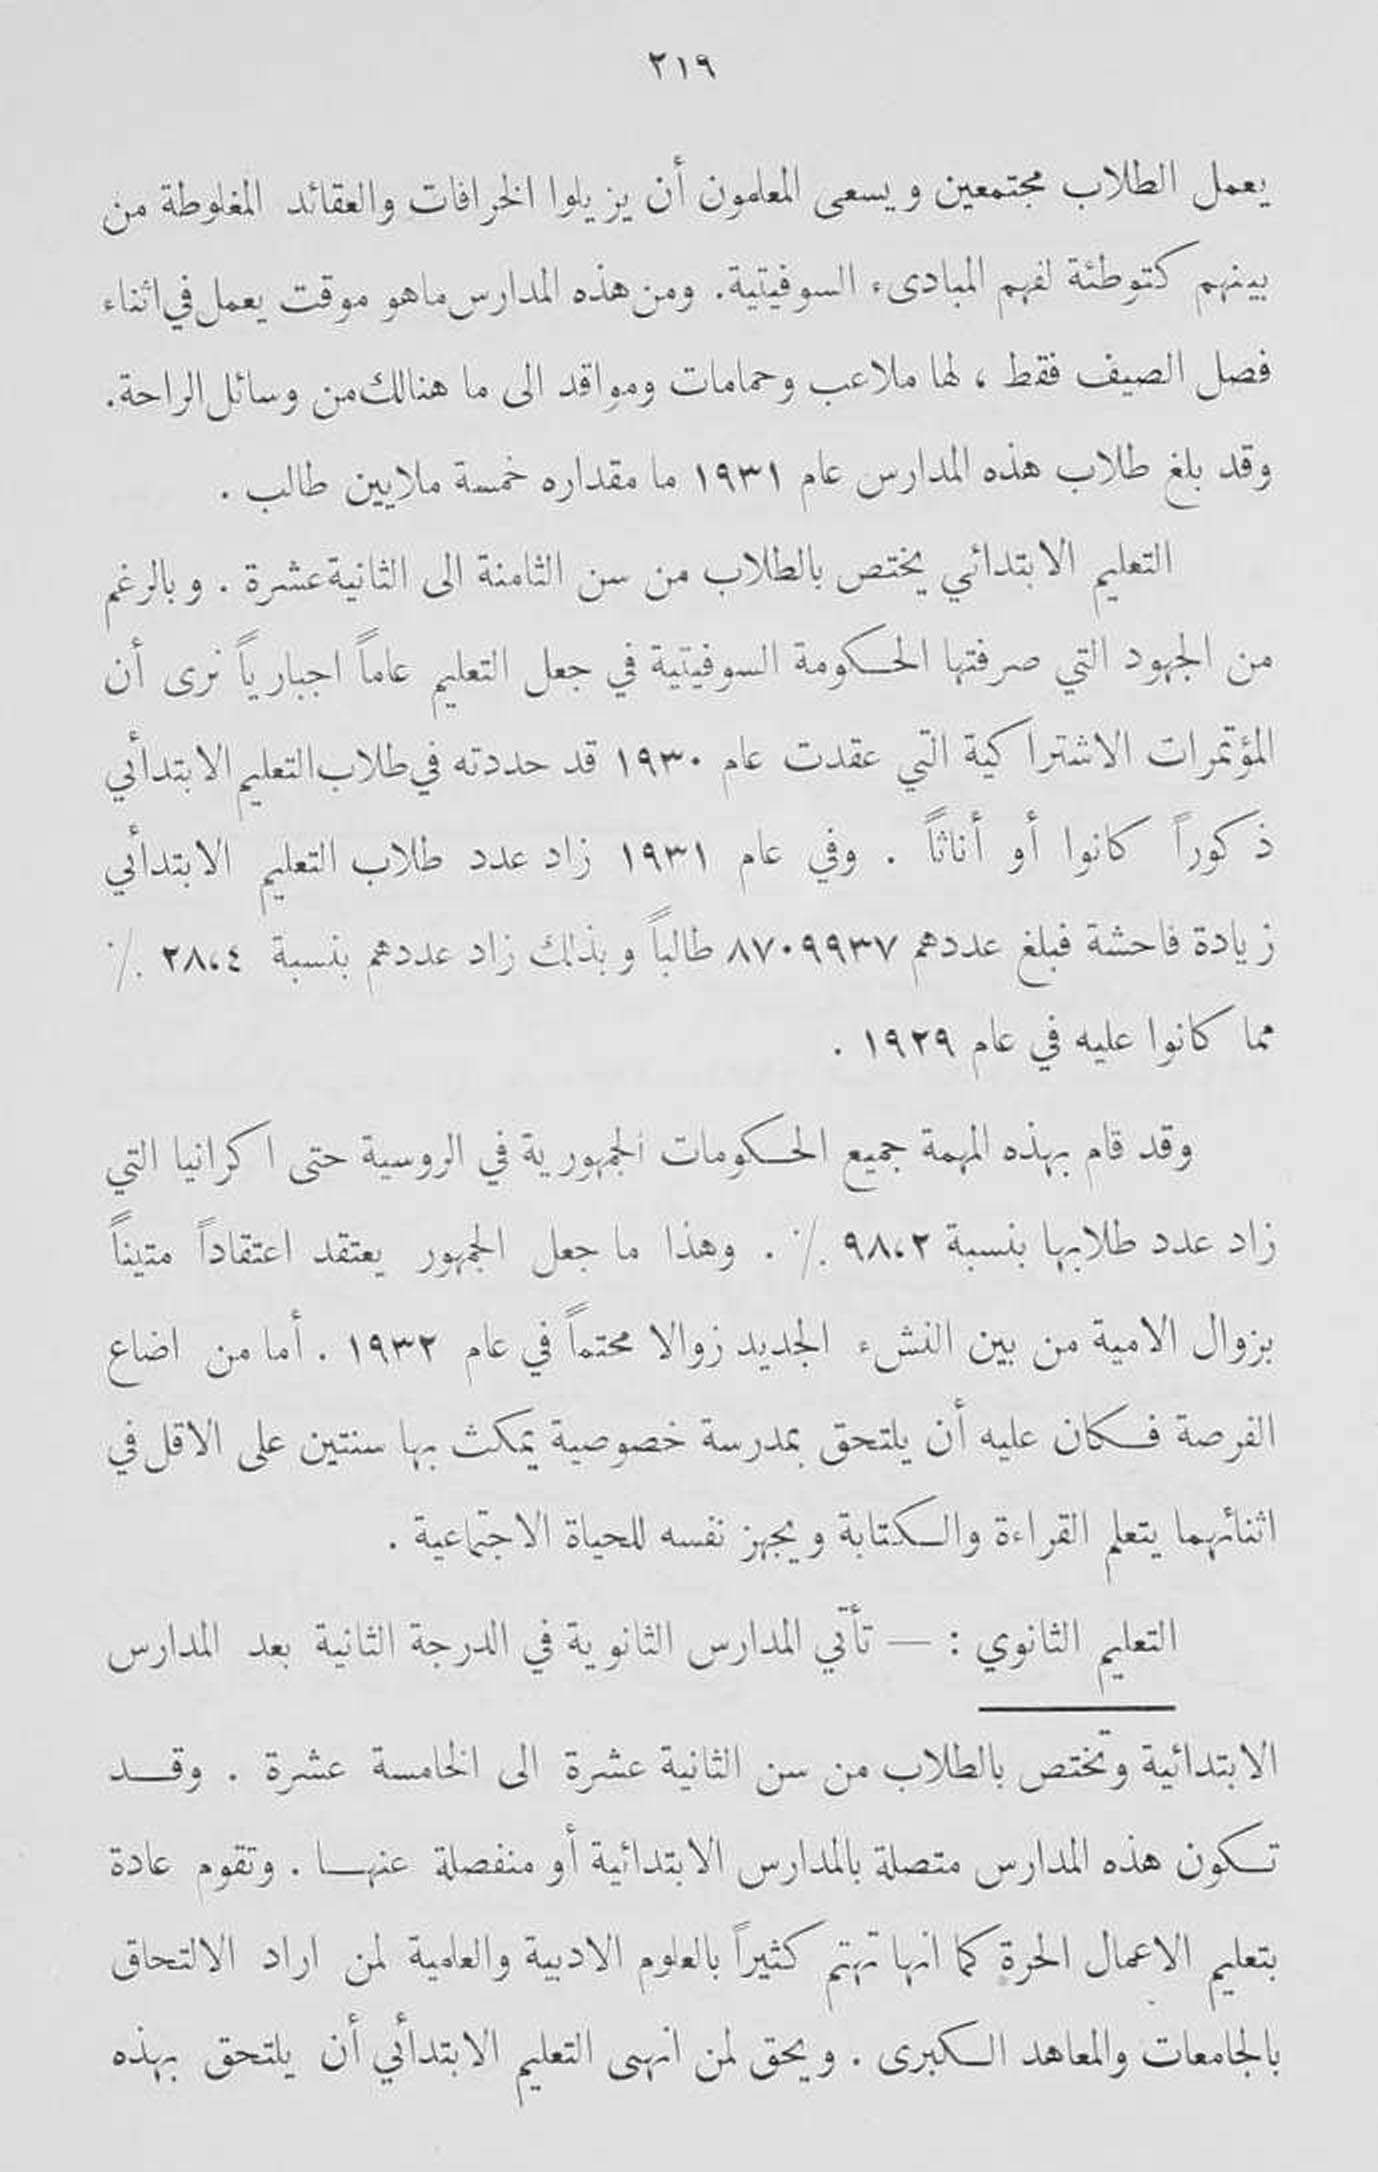 ٢١٩
يعمل الطلاب مجتمعين ويسعى المعلمون أن يزيلوا الخرافات والعقائد المغلوطة من
بينهم كتوطئة لفهم المبادىء السوفيتية. ومن هذه المدارس ماهو موقت يعمل في اثناء
فصل الصيف فقط ، لها ملاعب وحمامات ومواقد الى ما هنالك من وسائل الراحة.
وقد بلغ طلاب هذه المدارس عام ١٩٣١ ما مقداره خمسة ملايين طالب .
التعليم الابتدائي يختص بالطلاب من سن الثامنة الى الثانية عشرة . وبالرغم
من الجهود التي صرفتها الحكومة السوفيتية في جعل التعليم عاماً اجبارياً نرى أن
المؤتمرات الاشتراكية التي عقدت عام ١٩٣٠ قد حددته في طلاب التعليم الابتدائي
ذكوراً كانوا أو أناثاً . وفي عام ١٩٣١ زاد عدد طلاب التعليم الابتدائي
زيادة فاحشة فبلغ عددهم ٨٧٠٩٩٣٧ طالباً وبذلك زاد عددهم بنسبة ٢٨،٤ ٪
مما كانوا عليه في عام ١٩٢٩ .
وقد قام بهذه المهمة جميع الحكومات الجمهورية في الروسية حتى اكرانيا التي
زاد عدد طلابها بنسبة ٩٨،٢ ٪ . وهذا ما جعل الجمهور يعتقد اعتقاداً متيناً
بزوال الامية من بين النشء الجديد زوالا محتماً في عام ١٩٣٢ . أما من اضاع
الفرصة فكان عليه أن يلتحق بمدرسة خصوصية يمكث بها سنتين على الاقل في
اثنائهما يتعلم القراءة والكتابة ويجهز نفسه للحياة الاجتماعية .
التعليم الثانوي : — تأتي المدارس الثانوية في الدرجة الثانية بعد المدارس
الابتدائية وتختص بالطلاب من سن الثانية عشرة الى الخامسة عشرة . وقد
تكون هذه المدارس متصلة بالمدارس الابتدائية أو منفصلة عنها . وتقوم عادة
بتعليم الاعمال الحرة كما انها تهتم كثيراً بالعلوم الادبية والعلمية لمن اراد الالتحاق
بالجامعات والمعاهد الكبرى . ويحق لمن انهى التعليم الابتدائي أن يلتحق بهذه